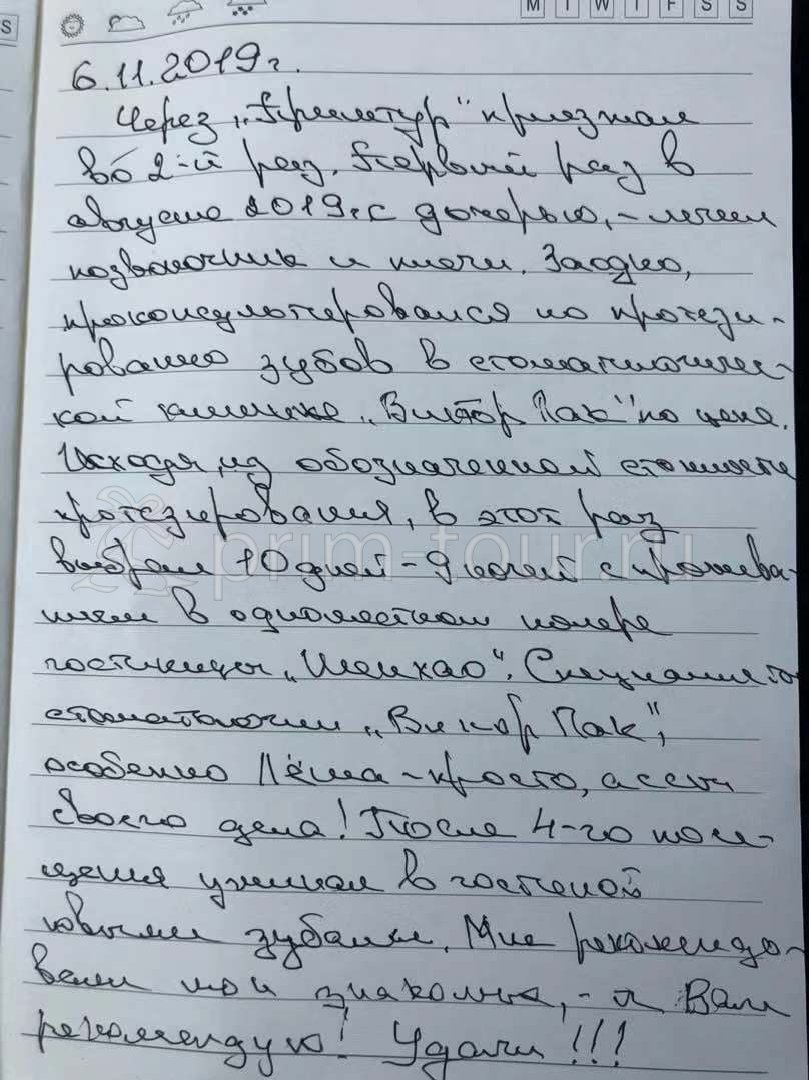 M T W T F S S
S
6.11.2019г.
Через „Примтур" приезжал
во 2-й раз. Первый раз в
августе 2019г. с дочерью, - лечил
позвоночник и плечи. Заодно,
проконсультировался по протези-
рованию зубов в стоматологичес-
кой клинике „Виктор Пак" по цене.
Исходя, из обозначенной стоимости
протезирования, в этот раз
выбрал 10 дней - 9 ночей с прожива-
нием в одноместном номере
гостиницы „Шенхао". Специалисты
стоматологии „Виктор Пак",
особенно Лёша - просто, ассы
своего дела! После 4-го посе-
щения уже в гостиной
новыми зубами. Мне рекомендо-
вали мои знакомые, - я Вам
рекомендую! Удачи!!!
prim-tour.ru